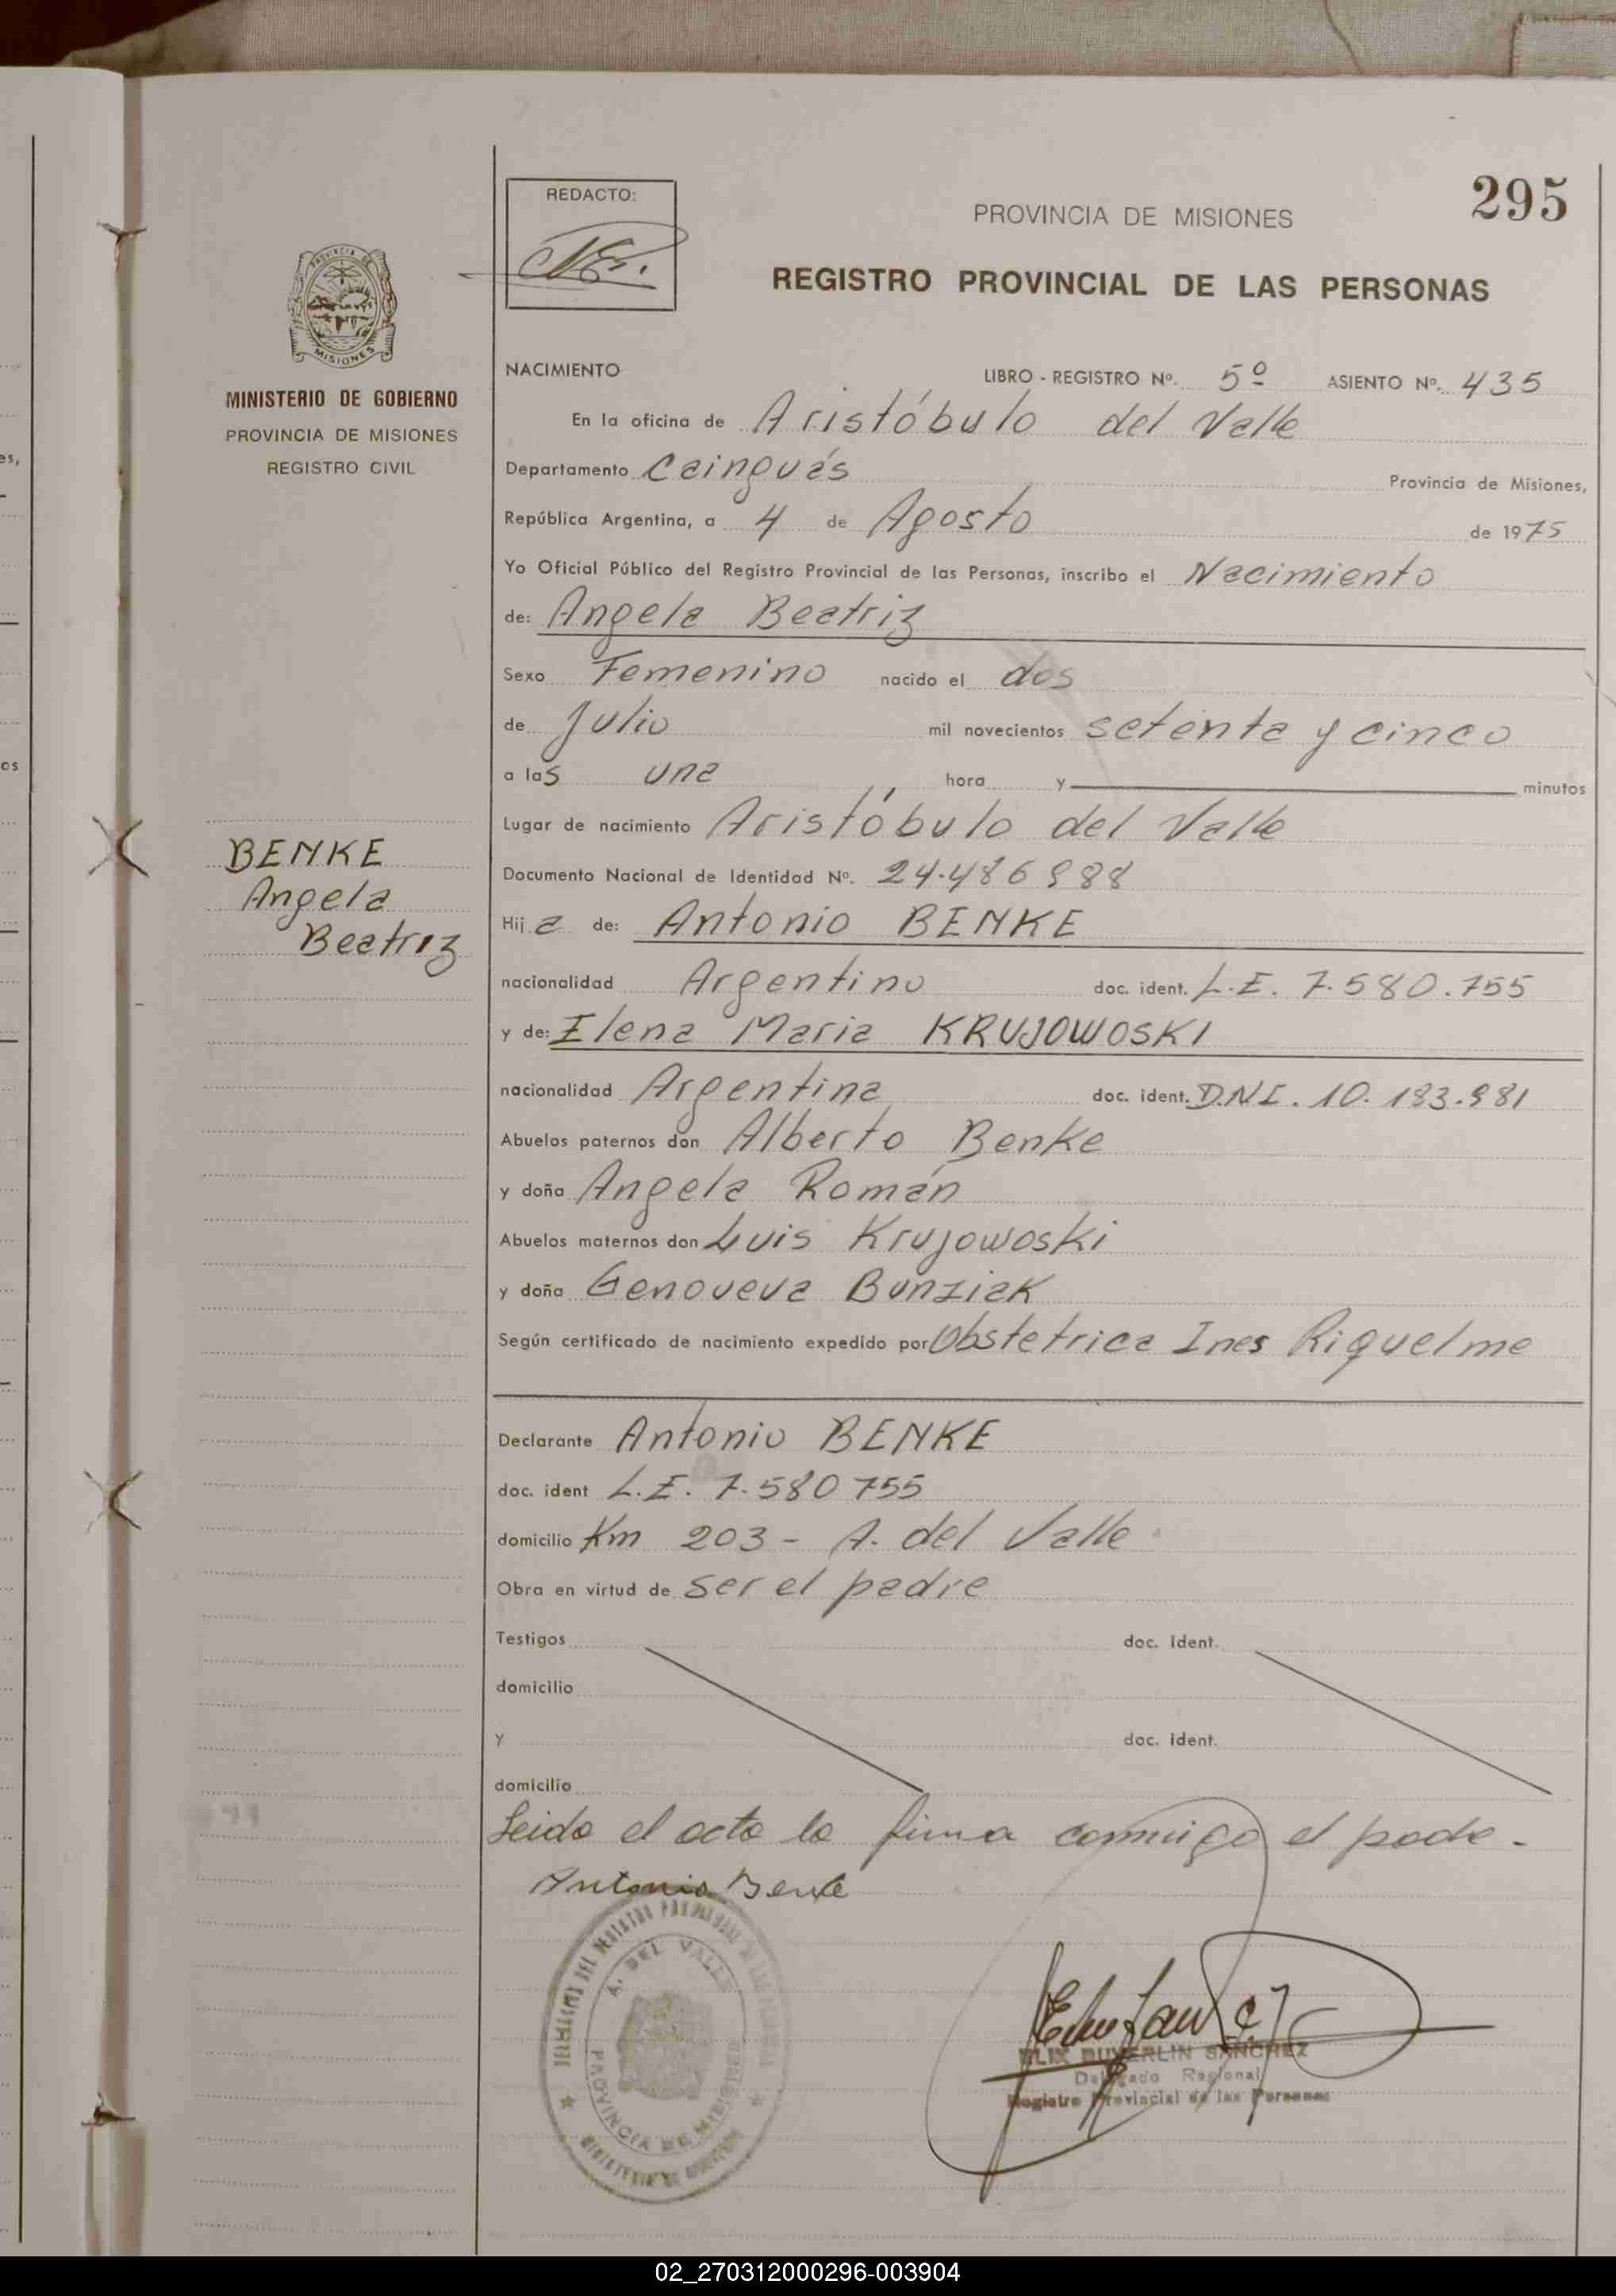 295
REDACTO:
PROVINCIA DE MISIONES
REGISTRO PROVINCIAL DE LAS PERSONAS
PROVINCIA DE
MISIONES
MINISTERIO DE GOBIERNO
PROVINCIA DE MISIONES
REGISTRO CIVIL
NACIMIENTO LIBRO - REGISTRO Nº. 5º ASIENTO Nº. 435
En la oficina de Aristóbulo del Valle
Departamento Cainguás Provincia de Misiones,
República Argentina, a 4 de Agosto de 1975
Yo Oficial Público del Registro Provincial de las Personas, inscribo el Nacimiento
de: Angela Beatriz
Sexo Femenino nacido el dos
de Julio mil novecientos setenta y cinco
a las una hora y minutos
Lugar de nacimiento Aristóbulo del Valle
BENKE
Angela
Beatriz
Documento Nacional de Identidad Nº. 24.486 988
Hija de: Antonio BENKE
nacionalidad Argentino doc. ident. L.E. 7.580.755
y de: Elena Maria KRUJOWOSKI
nacionalidad Argentina doc. ident. D.N.I. 10.183.981
Abuelos paternos don Alberto Benke
y doña Angela Román
Abuelos maternos don Luis Krujowoski
y doña Genoveva Bunziak
Según certificado de nacimiento expedido por Obstetrica Ines Riquelme
Declarante Antonio BENKE
doc. ident L.E. 7.580 755
domicilio Km 203 - A. del Valle
Obra en virtud de ser el padre
Testigos doc. Ident.
domicilio
y doc. ident.
domicilio
Leida el acta la firma conmigo el padre.-
Antonio Benke
A. DEL VALLE
PROVINCIA DE MISIONES
SANCHEZ
Delegado Regional
Registro Provincial de las Personas
02_270312000296-003904